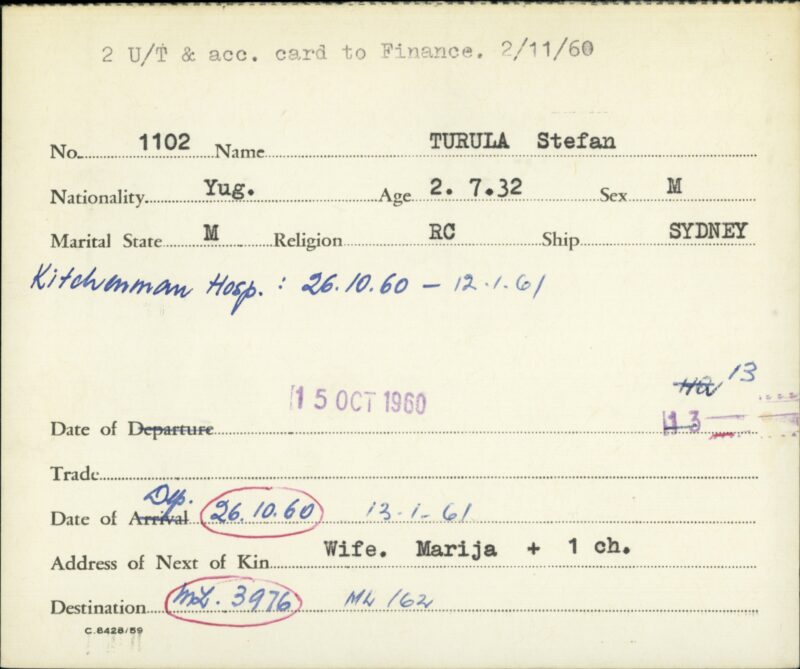 2 U/T & acc. card to Finance. 2/11/60
No. 1102 Name TURULA Stefan
Nationality Yug. Age 2. 7.32 Sex M
Marital State M Religion RC Ship SYDNEY
Kitchenman Hosp. : 26.10.60 – 12.1.61
HQ 13
15 OCT 1960
Date of Departure 13
Trade
Dep.
Date of Arrival 26.10.60 13-1-61
Address of Next of Kin Wife. Marija + 1 ch.
Destination ML. 3976 ML 162
C.8428/59